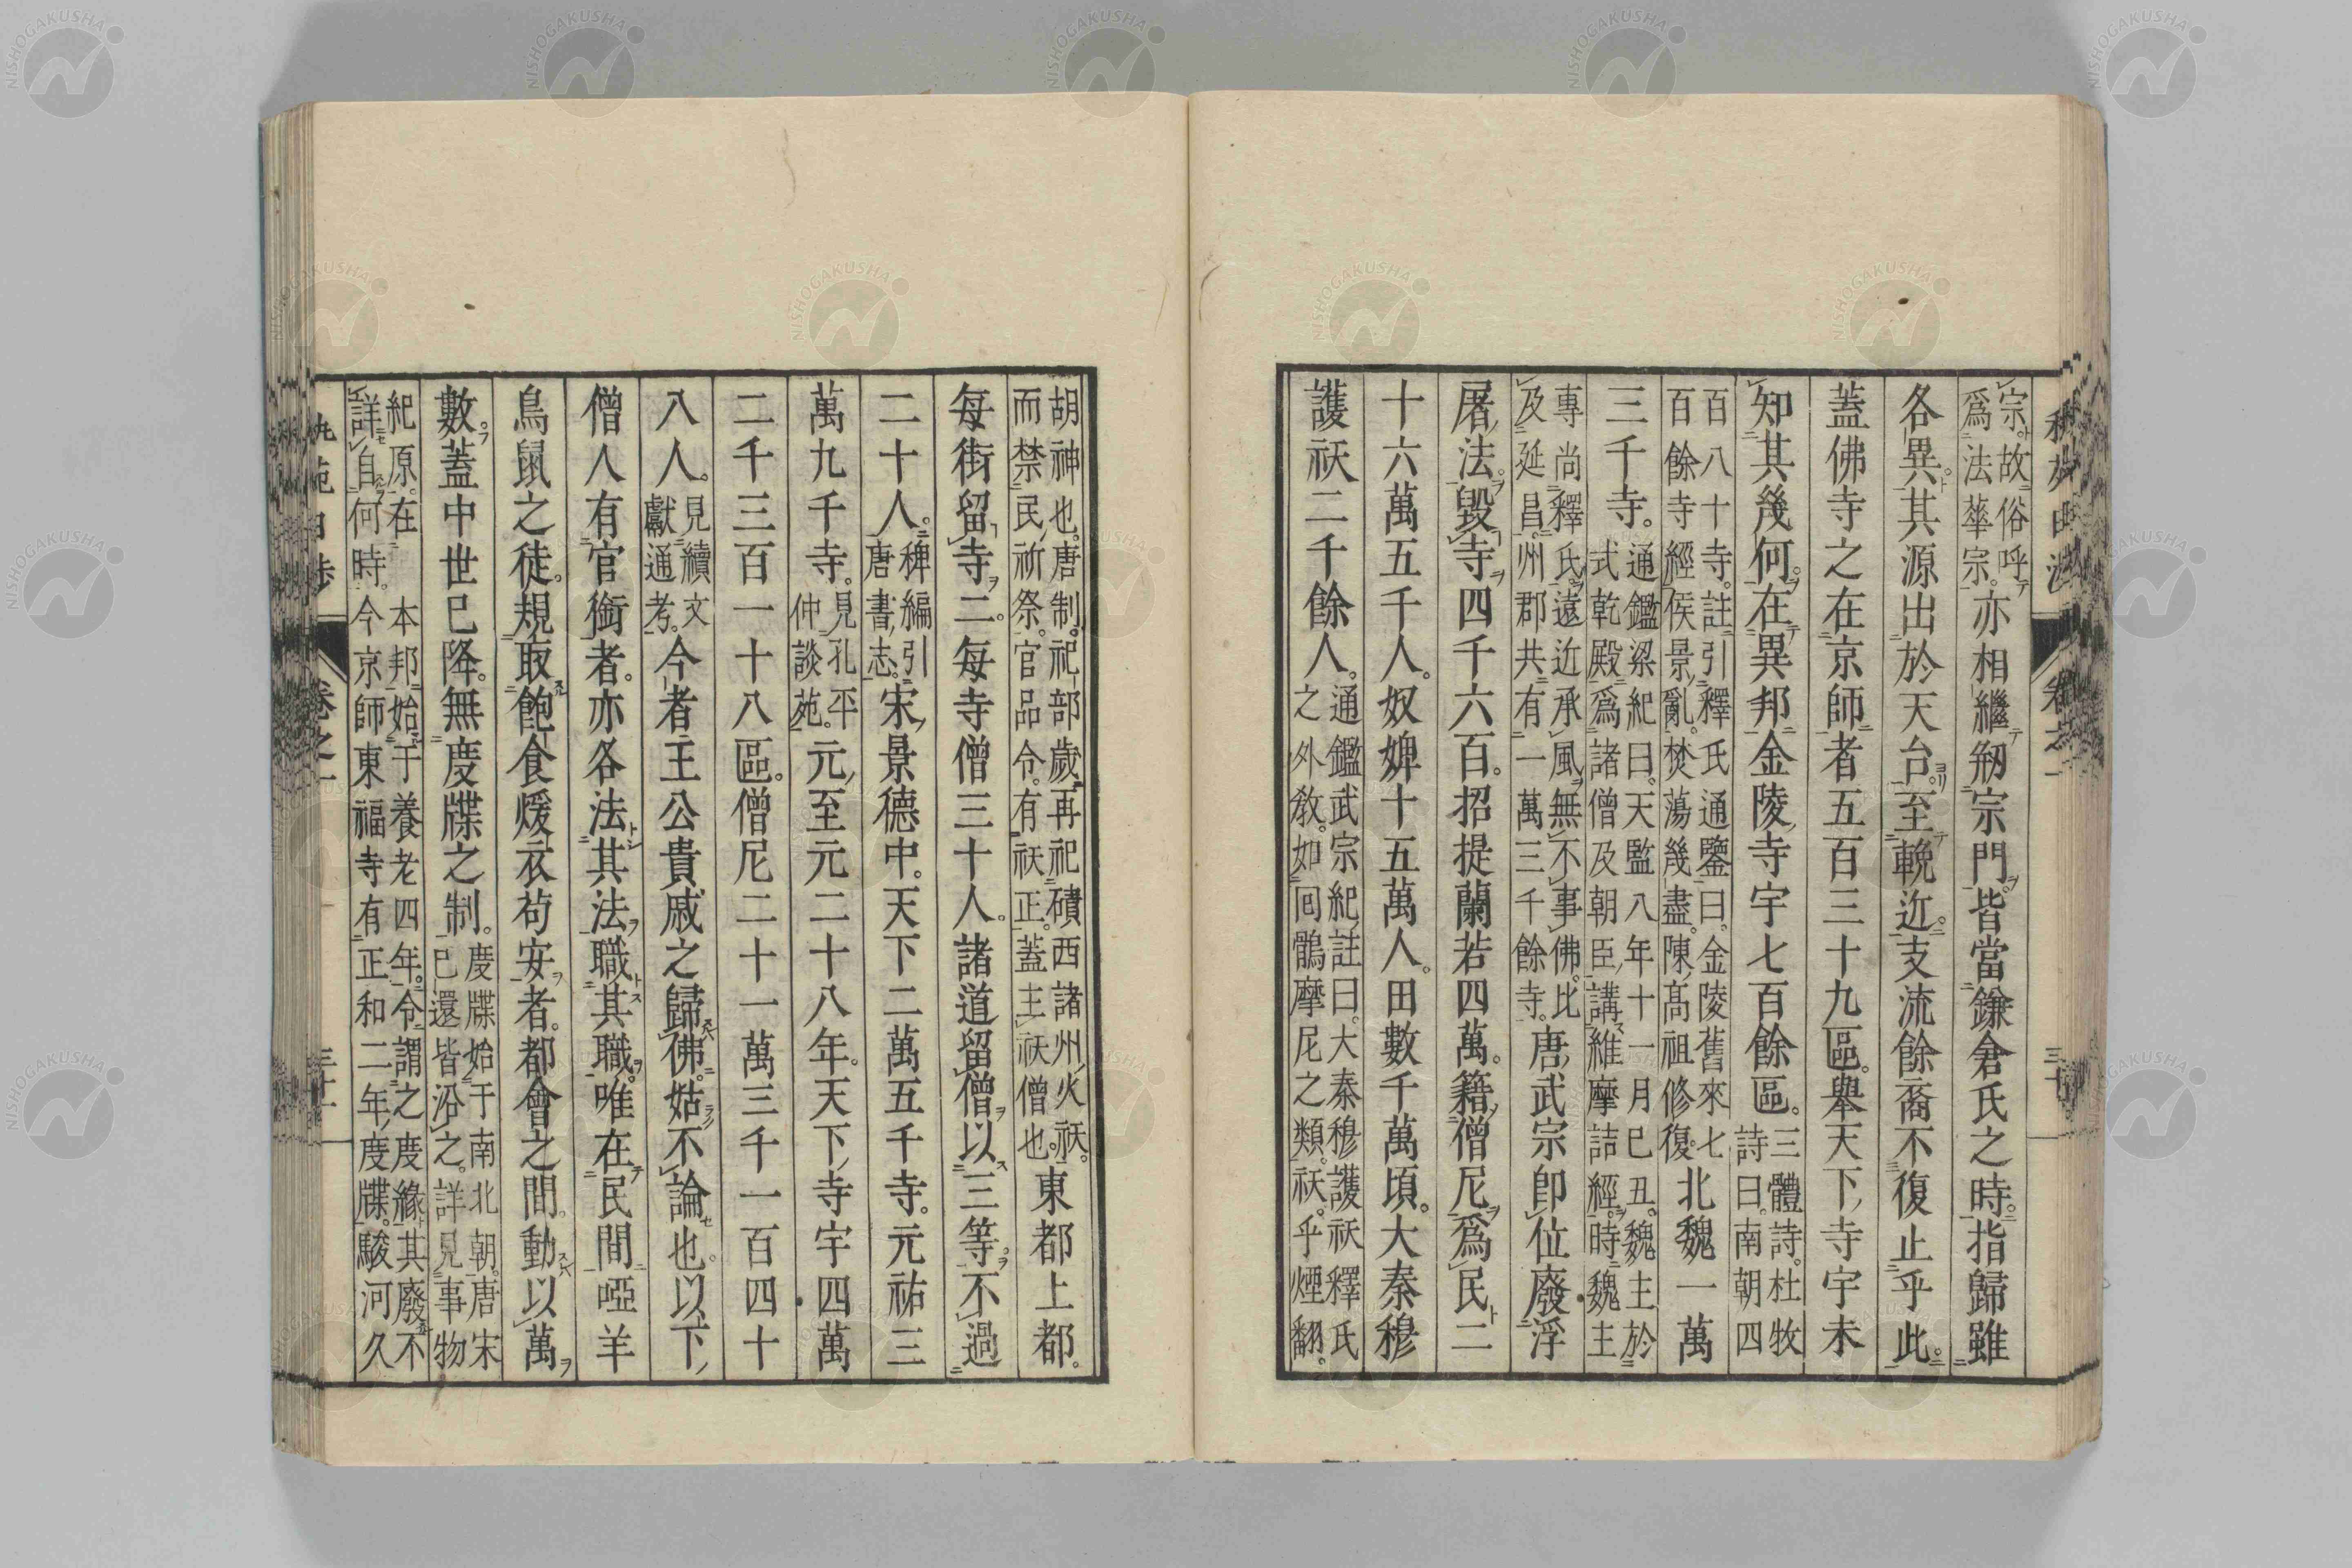 宗故俗呼亦相繼剏宗門皆當鎌倉氏之時指歸雖
爲法華宗
各異其源出於天台至輓近支流餘裔不復止乎此
蓋佛寺之在京師者五百三十九區舉天下寺宇未
知其幾何在異邦金陵寺宇七百餘區三體詩杜牧
詩曰南朝四
百八十寺註引釋氏通鑒曰金陵舊來七
百餘寺經侯景亂焚蕩幾盡陳高祖修復北魏一萬
三千寺通鑑梁紀曰天監八年十一月己丑魏主於
式乾殿爲諸僧及朝臣講維摩詰經時魏主
專尚釋氏遠近承風無不事佛比
及延昌州郡共有一萬三千餘寺唐武宗即位廢浮
屠法毀寺四千六百招提蘭若四萬籍僧尼爲民二
十六萬五千人奴婢十五萬人田數千萬頃大秦穆
護祆二千餘人通鑑武宗紀註曰大秦穆護祆釋氏
之外教如回鶻摩尼之類祆乎煙翻
胡神也唐制祀部歲再祀磧西諸州火祆
而禁民祈祭官品令有祆正蓋主祆僧也東都上都
每街留寺二每寺僧三十人諸道留僧以三等不過
二十人稗編引
唐書志宋景德中天下二萬五千寺元祐三
萬九千寺見孔平
仲談苑元至元二十八年天下寺宇四萬
二千三百一十八區僧尼二十一萬三千一百四十
八人見續文
獻通考今者王公貴戚之歸佛姑不論也以下
僧人有官銜者亦各法其法職其職唯在民間啞羊
鳥鼠之徒規取飽食煖衣苟安者都會之間動以萬
數蓋中世已降無度牒之制度牒始于南北朝唐宋
已還皆沿之詳見事物
紀原在本邦始于養老四年令謂之度緣其廢不
詳自何時今京師東福寺有正和二年度牒駿河久
卷之一
卷之一